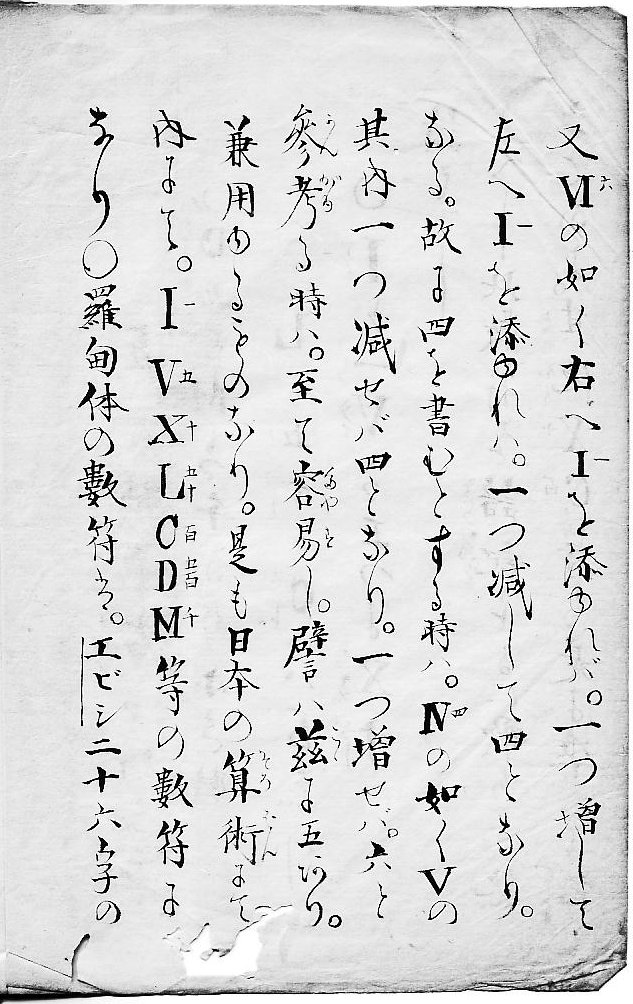 なり〇羅甸体の數符は。エビシ二十六字の
内にて。I V X L C D M等の數符に
兼用ゆることのなり。是も日本の算術にて
參考る時ハ。至て容易し。譬ハ茲に五あり。
其内一つ減せバ四となり。一つ増せバ。六と
なる。故に四を書むとする時ハ。IVの如くVの
左へIを添ゆれハ。一つ減して四となり。
又VIの如く右へIを添ゆれバ。一つ増して